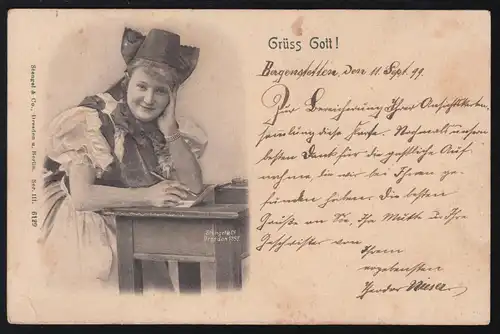 Grüss Gott!
Stengel & Co., Dresden u. Berlin. Ser. III. 8129
Stengel & Co
Dresden 1897
Bergenstetten, den 11. Sept. 99.
Zur Bereicherung Ihrer Ansichtskarten-
sammlung diese Karte. Nochmals unseren
besten Dank für die gastliche Auf-
nahme die wir bei Ihnen ge-
funden haben. Die besten
Grüße an Sie, Ihre Mutter u. Ihre
Geschwister von
Ihrem
ergebensten
Theodor